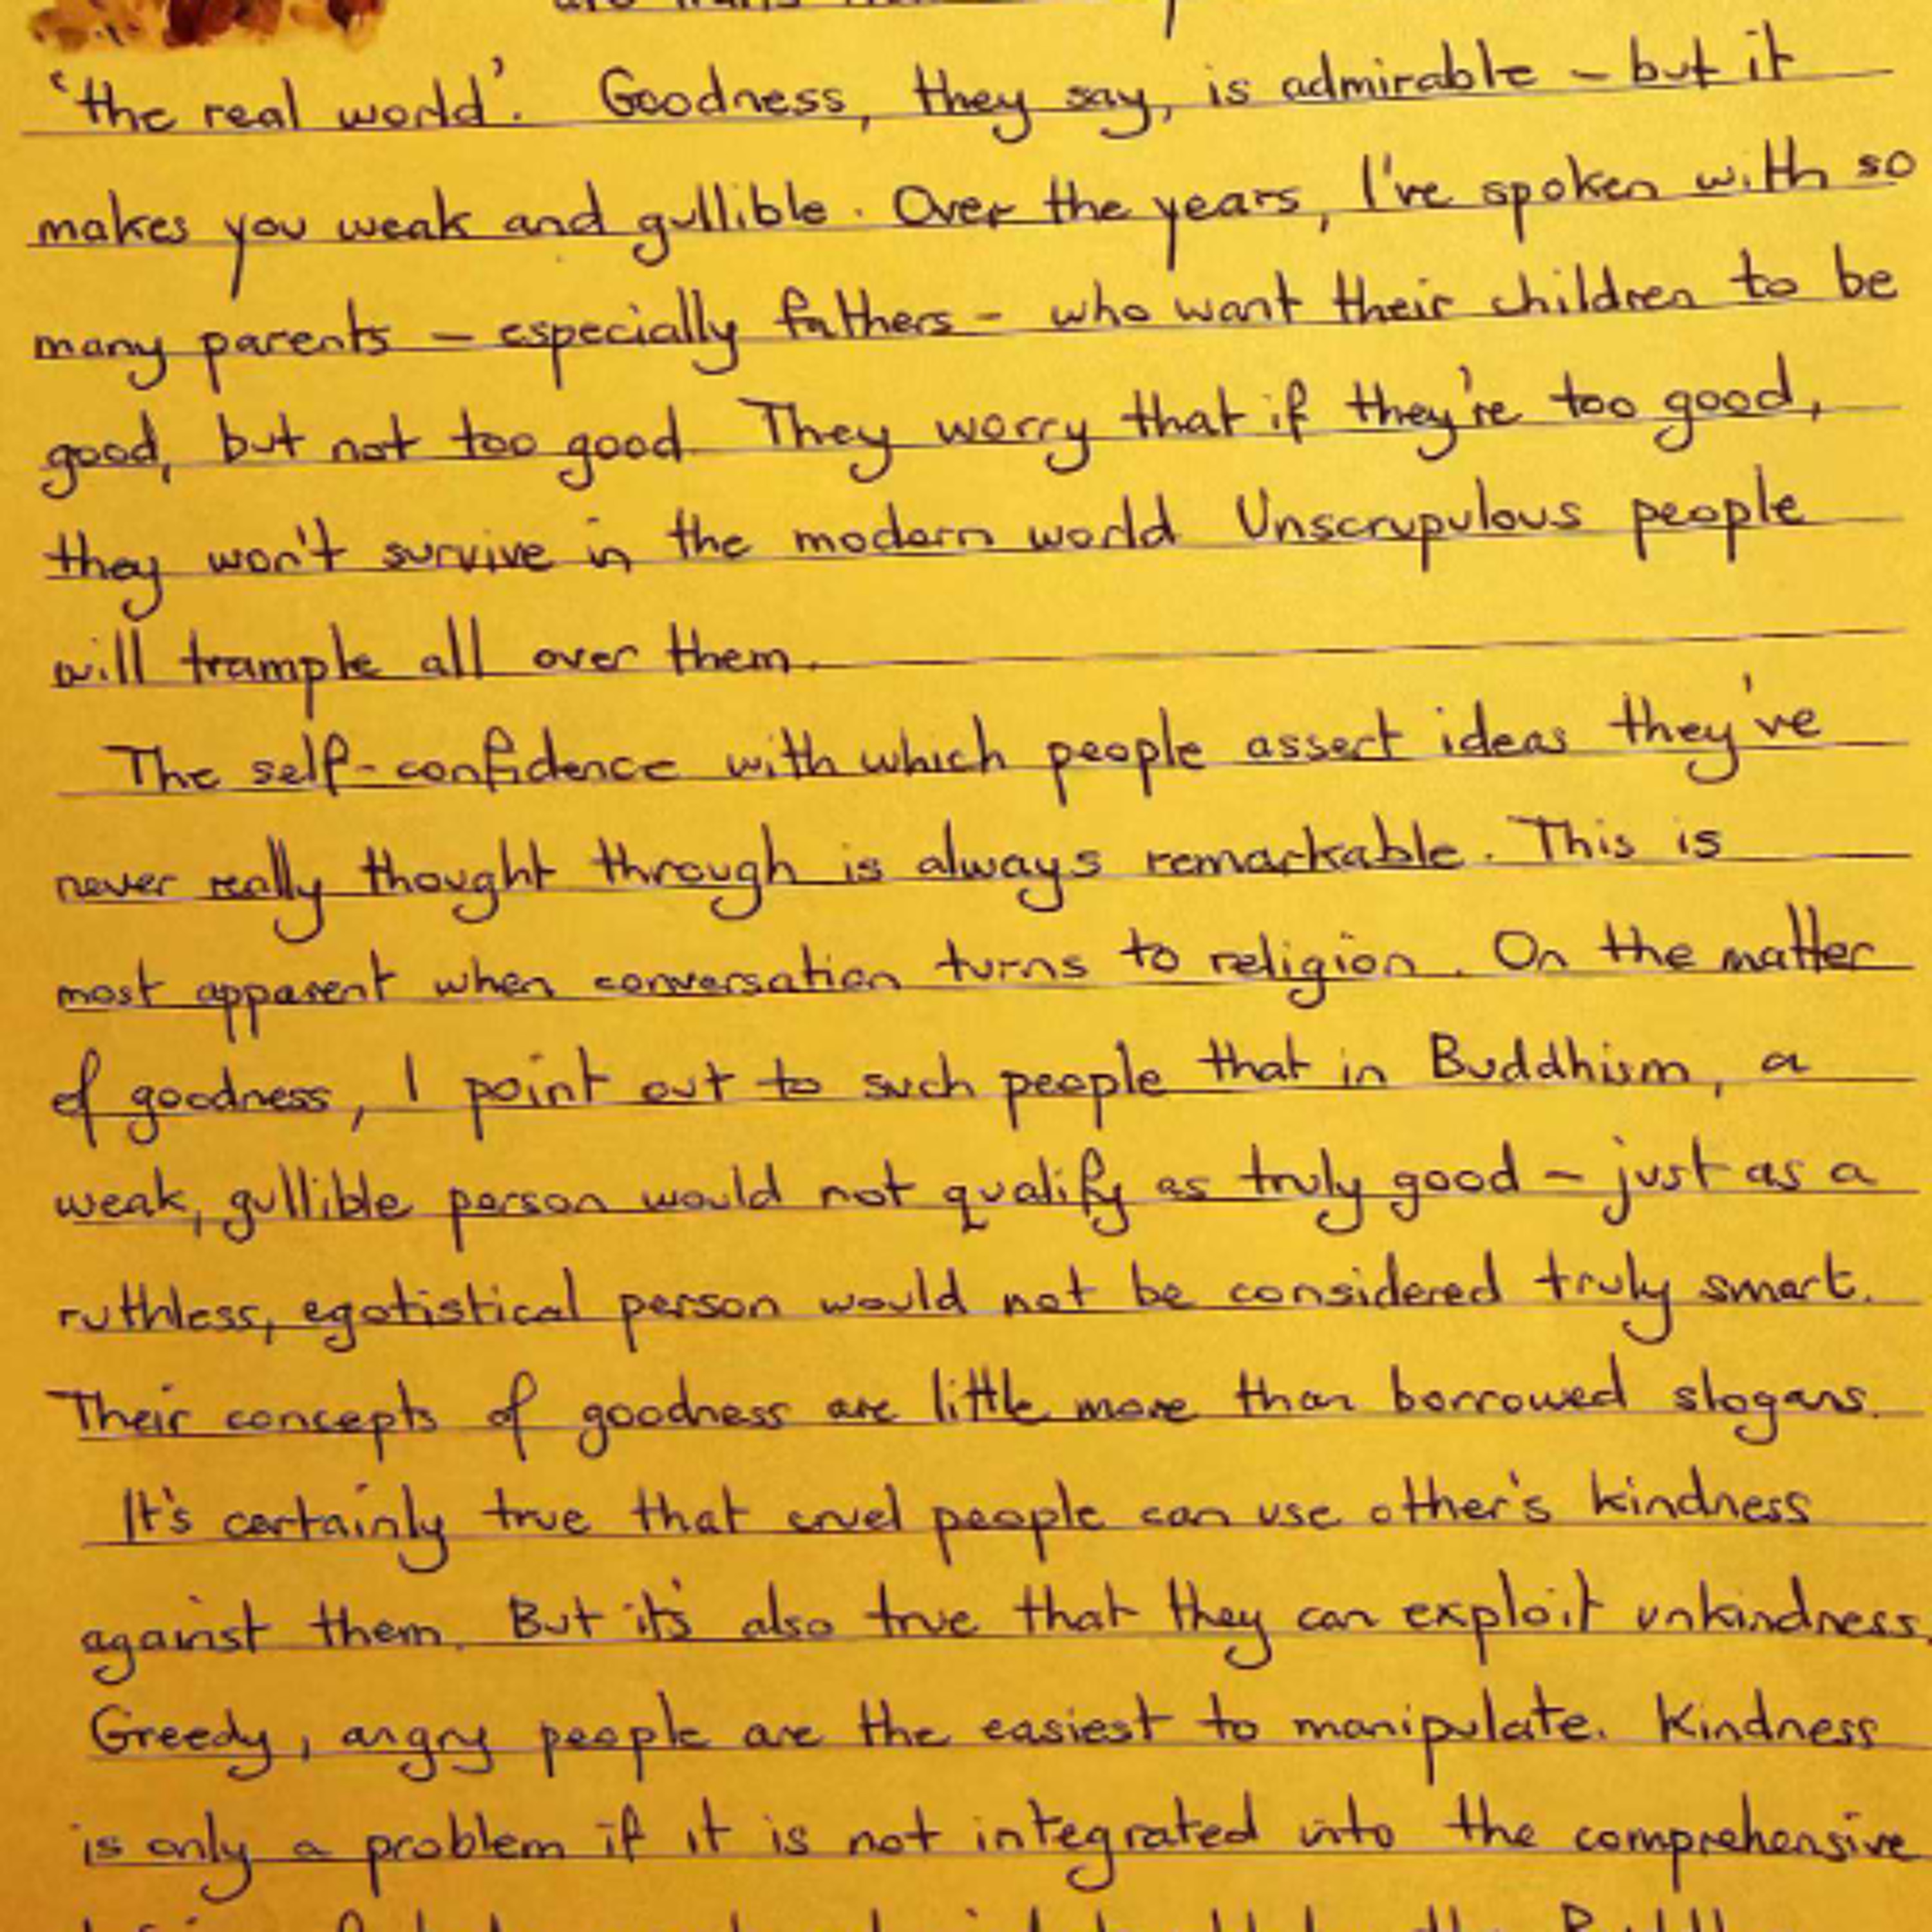 'the real world'. Goodness, they say, is admirable – but it
makes you weak and gullible. Over the years, I've spoken with so
many parents – especially fathers – who want their children to be
good, but not too good They worry that if they're too good,
they won't survive in the modern world Unscrupulous people
will trample all over them.
The self-confidence with which people assert ideas they've
never really thought through is always remarkable. This is
most apparent when conversation turns to religion. On the matter
of goodness, I point out to such people that in Buddhism, a
weak, gullible person would not qualify as truly good – just as a
ruthless, egotistical person would not be considered truly smart.
Their concepts of goodness are little more than borrowed slogans.
It's certainly true that cruel people can use other's kindness
against them. But it's also true that they can exploit unkindness.
Greedy, angry people are the easiest to manipulate. Kindness
is only a problem if it is not integrated into the comprehensive